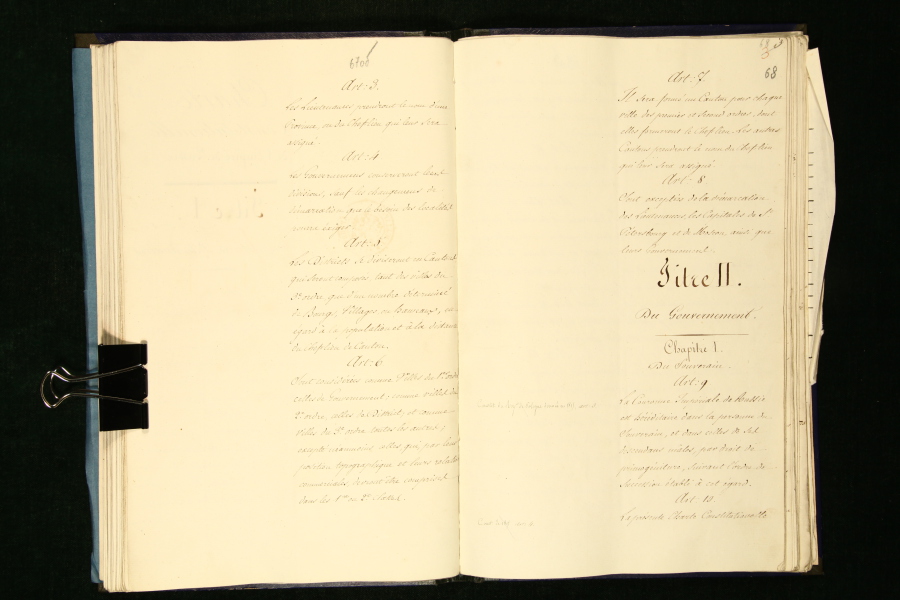 Art: 3.
Les Lieutenances prendront le nom d'une
ou du Cheflieu qui leur sera
assigné.
Art: 4
Les Gouvernemens conserveront leurs
divisions, sauf les changemens de
démarcation que le besoin des localités
pourra exiger.
Art: 5
Les Districts se diviseront en Cantons
qui seront composés, tant des villes du
3e ordre, que d'un nombre déterminé
de Bourgs, Villages ou hameaux, eu
égard à la population et à la distance
du Cheflieu de Canton.
Art: 6
Sont considérées comme Villes du 1er ordre
celles de Gouvernement; comme villes du
2e ordre, celles de District; et comme
villes du 3e ordre toutes les autres;
excepté néanmoins celles qui par leur
position topographique et leurs relations
commerciales, devront être comprises
dans les 1er ou 2e
68
Art: 7.
Il sera formé un Canton pour chaque
ville des premier et second ordres, dont
elles formeront le Cheflieu. Les autres
Cantons prendront le nom du Cheflieu
qui leur sera assigné
Art: 8
Sont exceptées de la démarcation
des Lieutenances, les Capitales de St
Pétersbourg et de Moscou ainsi que
leurs Gouvernemens.
Titre II.
Du Gouvernement.
Chapitre I.
Du Souverain.
Art: 9
La Couronne Impériale de Russie
est héréditaire dans la personne du
Souverain, et dans celles de ses
descendans mâles, par droit de
primogéniture, suivant l'ordre de
Succession établi à cet égard.
Art: 10.
La présente Charte Constitutionnelle